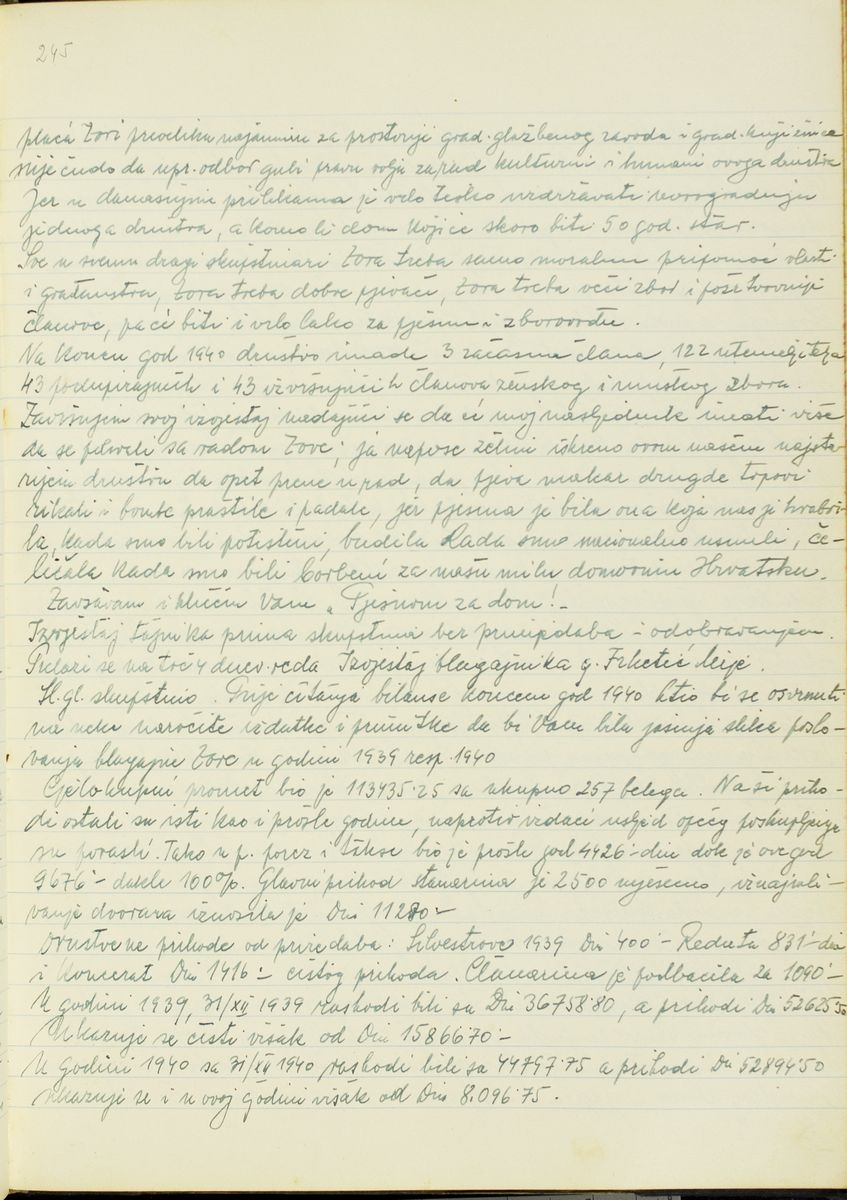 245
plaća Zori preveliku najamninu za prostorije grad. glazbenog zavoda i grad. knjižnice
nije čudo da upr. odbor gubi pravu volju za rad kulturni i humani ovoga društva
Jer u današnjim prilikama je vrlo teško uzdržavati novogradnju
jednoga društva, a kamo li dom koji će skoro biti 50 god. star.
Sve u svemu dragi skupštinari Zora treba samo moralnu pripomoć vlasti
i građanstva, Zora treba dobre pjevače, Zora treba veći zbor i požrtvovnije
članove, pa će biti i vrlo lako za pjesmu i zborovođu.
Na koncu god 1940 društvo imade 3 začasna člana, 122 utemeljitelja
43 podupirajućih i 43 izvršujućih članova ženskog i muškog zbora.
Završujem svoj izvještaj nadajući se da će moj nasljednik imati više
da se pohvali sa radom Zore; ja napose želim iskreno ovom našem najsta-
rijem društvu da opet prene u rad, da pjeva makar drugde topovi
rikali i bombe praštile i padale, jer pjesma je bila ona koja nas je hrabri-
la, kada smo bili potišteni, budila kada smo nacionalno usnuli, če-
ličila kada smo bili borbeni za našu milu domovinu Hrvatsku.
Završavam i kličem Vam „Pjesmom za dom!"
Izvještaj tajnika prima skupština bez primjedaba i odobravanjem.
Prelazi se na toč 4 dnev. reda Izvještaj blagajnika g. Frketić
Sl. gl. skupštino. Prije čitanja bilanse koncem god 1940 htio bi se osvrnuti
na neke naročite izdatke i primitke da bi Vam bila jasnija slika poslo-
vanja blagajne Zore u godini 1939 resp. 1940
Cjelokupni promet bio je 113435.25 sa ukupno 257 belega. Naši priho-
di ostali su isti kao i prošle godine, naprotiv izdaci usljed općeg poskupljenja
su porasli. Tako n. p. porez i takse bio je prošle god 4426'- din dok je ove god
9676'- dakle 100%. Glavni prihod stanarina je 2500 mjesečno, iznajmlji-
vanje dvorana iznosila je Din 11280'-
Društvene prihode od priredaba: Silvestrovo 1939 Din 400'- Reduta 831'- din
i Koncerat Din 1416'- čistog prihoda. Članarina je podbacila za 1090'-
U godini 1939, 31/XII 1939 rashodi bili su Din 36758.80, a prihodi Din 52625.50
Ukazuje se čisti višak od Din 15866.70'-
U godini 1940 sa 31/XII 1940 rashodi bili su 44797.75 a prihodi Din 52894.50
ukazuje se i u ovoj godini višak od Din 8.096.75.